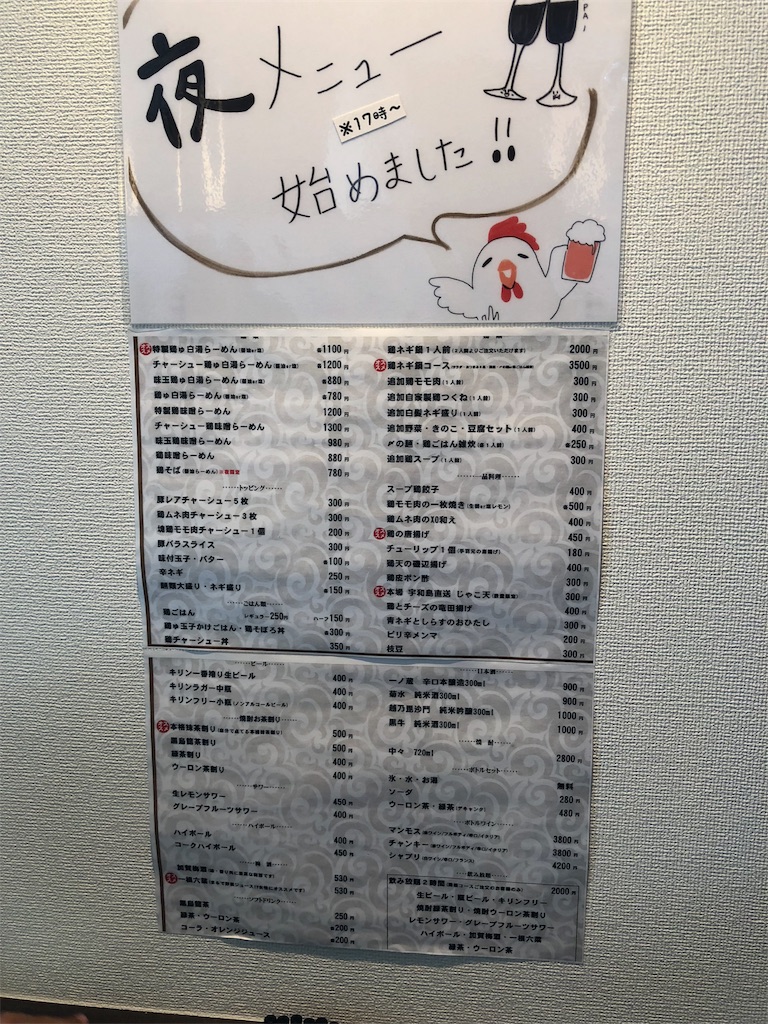 PAI
夜メニュー
※17時～
始めました!!
特製鶏ゅ白湯らーめん 1100円
チャーシュー鶏ゅ白湯らーめん 各1200円
味玉鶏ゅ白湯らーめん 各880円
鶏ゅ白湯らーめん 各780円
特製鶏味噌らーめん 1200円
チャーシュー鶏味噌らーめん 1300円
味玉鶏味噌らーめん 980円
鶏味噌らーめん 880円
鶏そば 780円
……トッピング……
豚レアチャーシュー５枚 300円
鶏ムネ肉チャーシュー３枚 300円
鶏モモ肉チャーシュー１個 200円
豚バラスライス 300円
味付玉子・バター 各100円
辛ネギ 250円
麺類大盛り・ネギ盛り 各150円
……ごはん類……
鶏ごはん レギュラー250円 ハーフ150円
鶏ゅ玉子かけごはん・鶏そぼろ丼 各300円
鶏チャーシュー丼 350円
鶏ネギ鍋１人前(２人前よりご注文いただけます) 2000円
鶏ネギ鍋コース 3500円
追加鶏モモ肉(１人前) 300円
追加自家製鶏つくね(１人前) 300円
追加白髪ネギ盛り(１人前) 300円
追加野菜・きのこ・豆腐セット(１人前) 400円
〆の麺・鶏ごはん雑炊(各１人前) 各250円
追加鶏スープ(１人前) 300円
……一品料理……
スープ鶏餃子 400円
鶏モモ肉の一枚焼き 各500円
鶏ムネ肉のXO和え 400円
鶏の唐揚げ 450円
チューリップ１個 180円
鶏天の磯辺揚げ 400円
鶏皮ポン酢 300円
本場 宇和島直送 じゃこ天 300円
鶏とチーズの竜田揚げ 400円
青ネギとしらすのおひたし 300円
ピリ辛メンマ 200円
枝豆 300円
……ビール……
キリン一番搾り生ビール 400円
キリンラガー中瓶 400円
キリンフリー小瓶(ノンアルコールビール) 400円
……焼酎お茶割り……
本格抹茶割り 500円
黒烏龍茶割り 500円
緑茶割り 400円
ウーロン茶割り 400円
……サワー……
生レモンサワー 450円
グレープフルーツサワー 400円
……ハイボール……
ハイボール 400円
コークハイボール 450円
加賀梅酒 530円
530円
……ソフトドリンク……
黒烏龍茶 250円
緑茶・ウーロン茶 各200円
コーラ・オレンジジュース 各200円
……日本酒……
一ノ蔵 辛口本醸造300ml 900円
菊水 純米酒300ml 900円
越乃毘沙門 純米吟醸300ml 1000円
黒牛 純米酒300ml 1000円
……焼 酎……
中々 720ml 2800円
……ボトルセット……
氷・水・お湯 無料
ソーダ 280円
ウーロン茶・緑茶(デキャンタ) 480円
……ボトルワイン……
マンモス(赤ワイン/フルボディ/辛口/イタリア) 3800円
チャンキー 3800円
シャブリ(白ワイン/辛口/フランス) 4200円
……飲み放題……
飲み放題２時間 2000円
生ビール・瓶ビール・キリンフリー
焼酎緑茶割り・焼酎ウーロン茶割り
レモンサワー・グレープフルーツサワー
ハイボール・加賀梅酒
緑茶・ウーロン茶